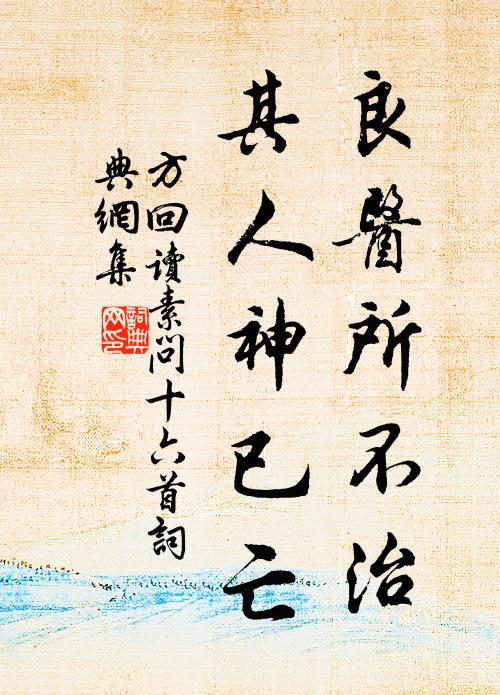 良醫所不治
其人神已亡
方回讀素問十六首詞
典網集
詞典
网印